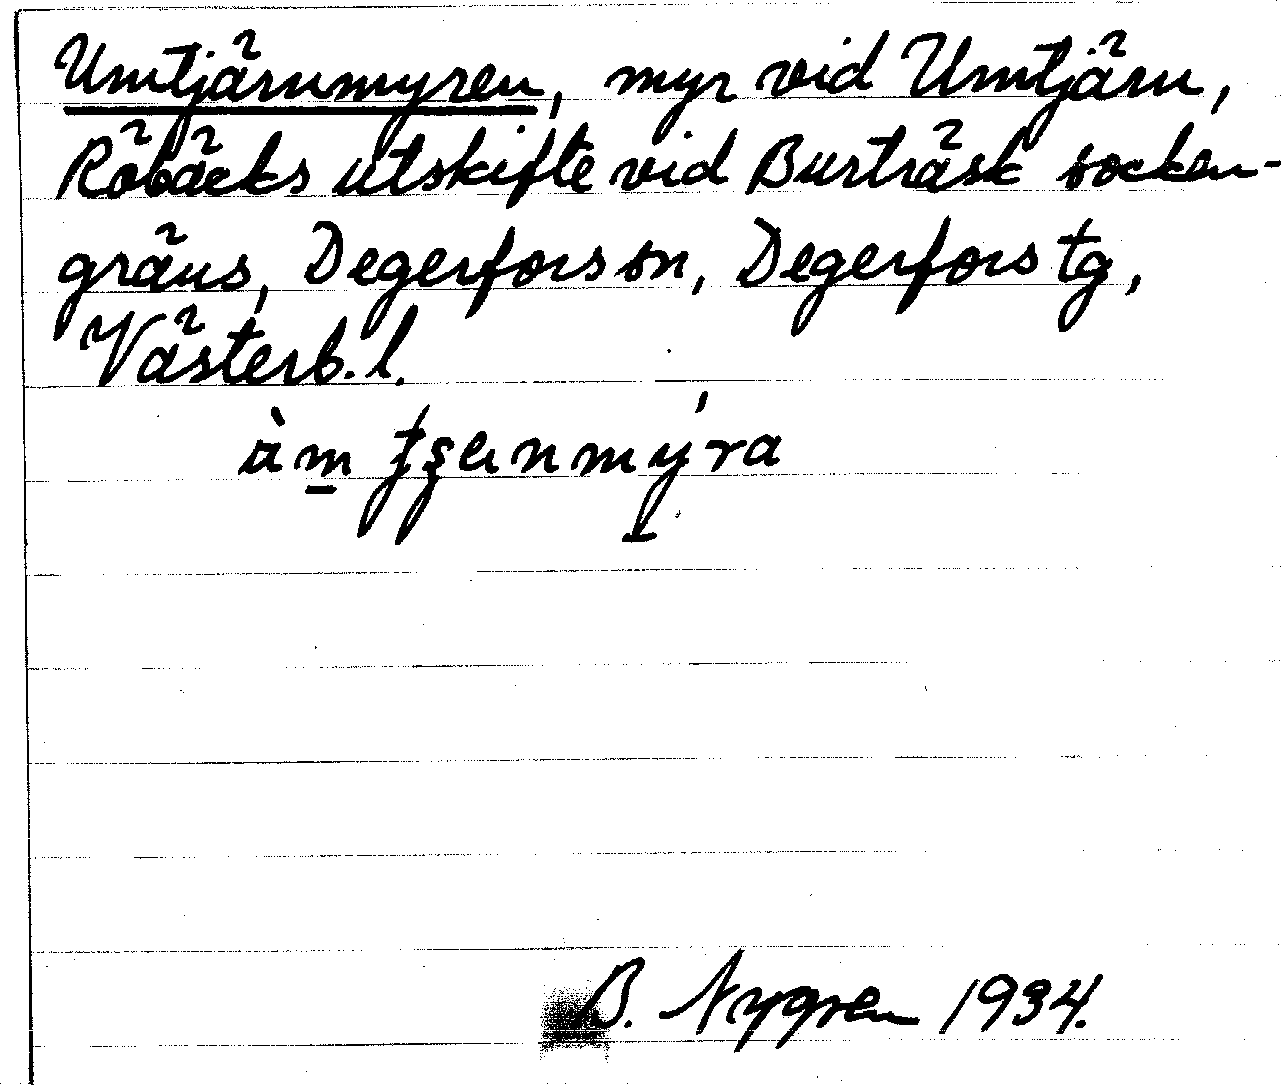 Umtjärnmyren, myr vid Umtjärn,
Röbäcks utskifte vid Burträsk socken-
gräns, Degerfors sn, Degerfors tg,
Västerb. l.
B. Nygren 1934.